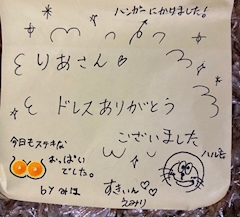 ハンガーにかけました!
りあさん♡
ドレスありがとう
ございました
今日もステキな
おっぱい
でした。
by みは
すきぃん♡♡